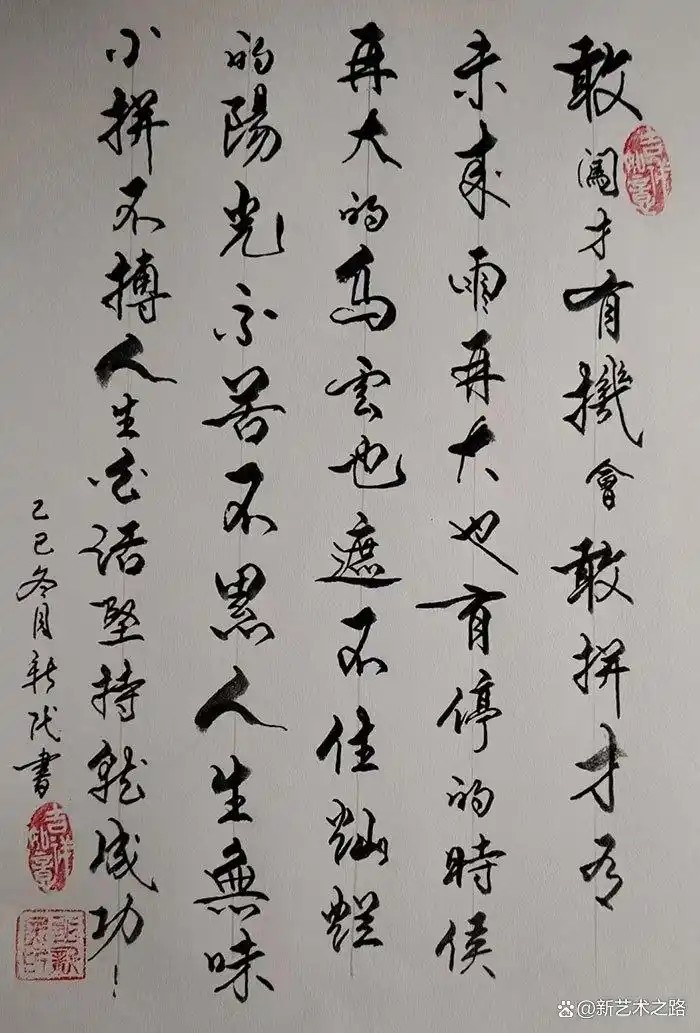 敢闖才有機會敢拼才有
未來雨再大也有停的時侯
再大的烏雲也遮不住燦爛
的陽光不苦不累人生無味
不拼不搏人生白活堅持就成功！
乙巳冬月新民書
吉祥如意
吉祥如意
新艺术之路